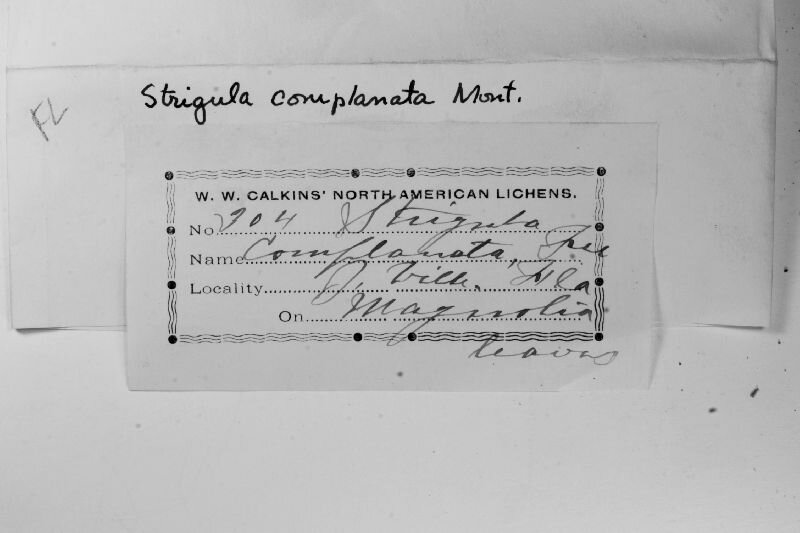 FL
Strigula complanata Mont.
W. W. CALKINS' NORTH AMERICAN LICHENS.
No. 204 Strigula
Name Complanata, Fee
Locality J. Ville. Fla
On Magnolia
leaves